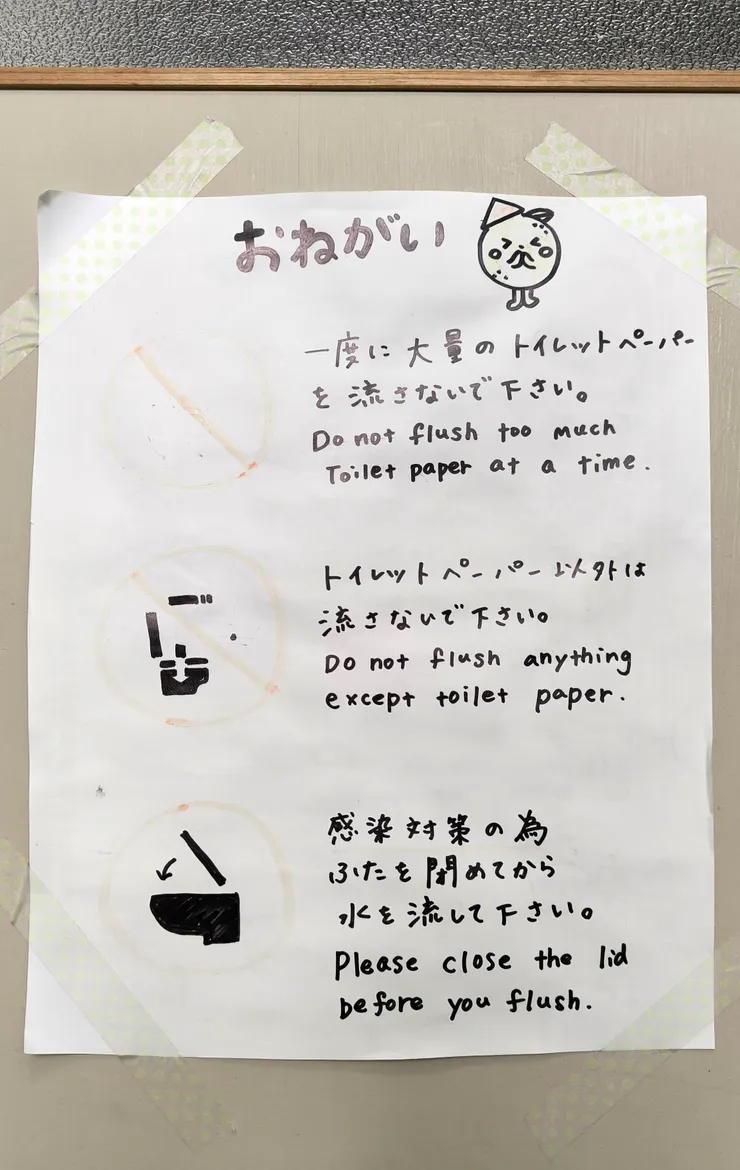 おねがい
一度に大量のトイレットペーパー
を流さないで下さい。
Do not flush too much
Toilet paper at a time.
トイレットペーパー以外は
流さないで下さい。
Do not flush anything
except toilet paper.
感染対策の為
ふたを閉めてから
水を流して下さい。
Please close the lid
before you flush.